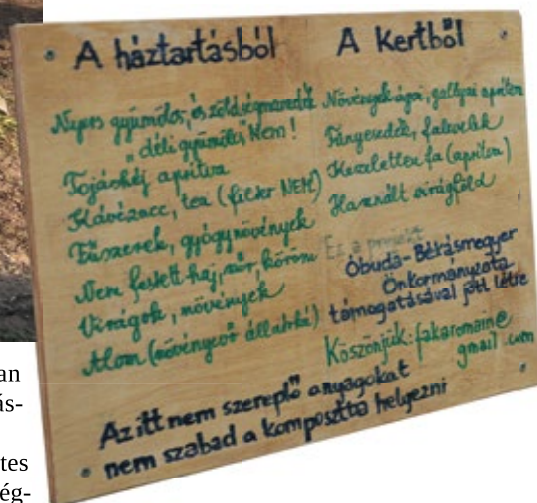 A háztartásból
Nyers gyümölcs, és zöldségmaradék
déli gyümölcs Nem!
Tojáshéj aprítva
Kávézacc, tea (filter NEM)
Fűszerek, gyógynövények
Nem festett haj, szőr, köröm
Virágok, növények
Alom (növényevő állatoké)
A kertből
Növények ágai, gallyai aprítva
Fanyesedék, falevelek
Kezeletlen fa (aprítva)
Használt virágföld
Ez a projekt
Óbuda-Békásmegyer
Önkormányzata
támogatásával jött létre
Köszönjük: fakaromain@
gmail.com
Az itt nem szereplő anyagokat
nem szabad a komposztba helyezni
an
ás-
tes
ég-